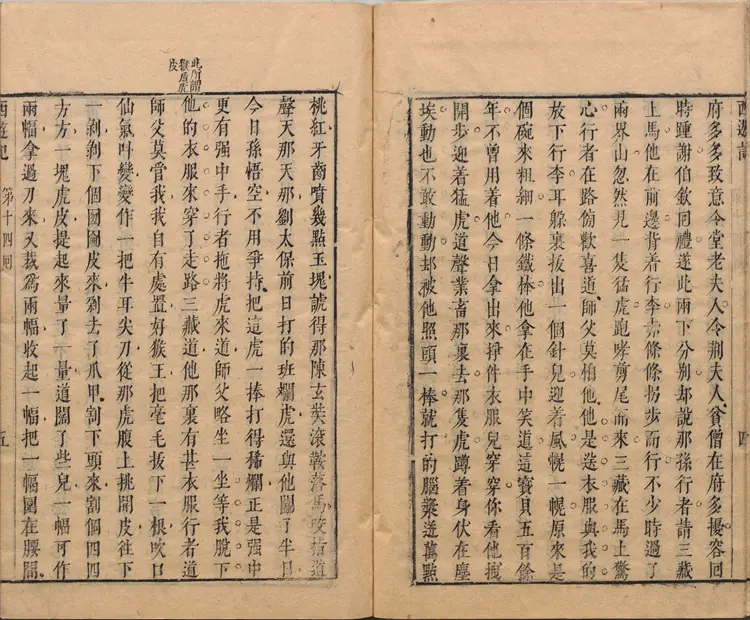 府多多致意令堂老夫人令荆夫人貧僧在府多擾容回
時踵謝伯欽囘禮遂此兩下分別却說那孫行者請三藏
上馬他在前邊背着行李赤條條拐步而行不少時過了
兩界山忽然見一隻猛虎跑哮剪尾而來三藏在馬上驚
心行者在路傍歡喜道師父莫怕他他是送衣服與我的
放下行李耳躲裏拔出一個針兒迎着風幌一幌原來是
個碗來粗細一條鐵棒他拿在手中笑道這寶貝五百餘
年不曾用着他今日拿出來掙件衣服兒穿穿你看他拽
開步迎着猛虎道聲業畜那裏去那隻虎蹲着身伏在塵
埃動也不敢動動却被他照頭一棒就打的腦漿迸萬點
桃紅牙齒噴幾點玉塊諕得那陳玄奘滾鞍落馬咬指道
聲天那天那劉太保前日打的班斕虎還與他鬬了半日
今日孫悟空不用爭持把這虎一棒打得稀爛正是強中
更有强中手行者拖將虎來道師父略坐一坐等我脫下
他的衣服來穿了走路三藏道他那裏有甚衣服行者道
師父莫管我我自有處置好猴王把毫毛拔下一根吹口
仙氣叶變變作一把牛耳尖刀從那虎腹上挑開皮往下
一剥剥下個囫圇皮來剁去了爪甲割下頭來割個四四
方方一塊虎皮提起來量了一量道闊了些兒一幅可作
兩幅拿過刀來又裁爲兩幅收起一幅把一幅圍在腰間
西遊記 第十四囘 五